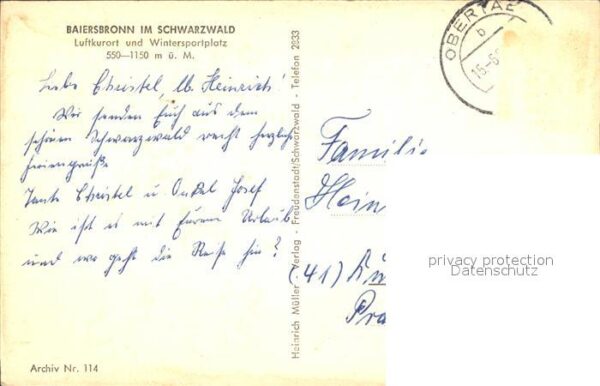 BAIERSBRONN IM SCHWARZWALD
Luftkurort und Wintersportplatz
550—1150 m ü. M.
Liebe Christel, lb. Heinrich!
Wir senden Euch aus dem
schönen Schwarzwald recht herzliche
Feriengrüße
Tante Christel u. Onkel Josef
Wie ist es mit Eurem Urlaub
und wo geht die Reise hin?
Archiv Nr. 114
Heinrich Müller Verlag - Freudenstadt/Schwarzwald - Telefon 2833
OBERTAL
b
15.-6
Familie
Hein
(41)
privacy protection
Datenschutz